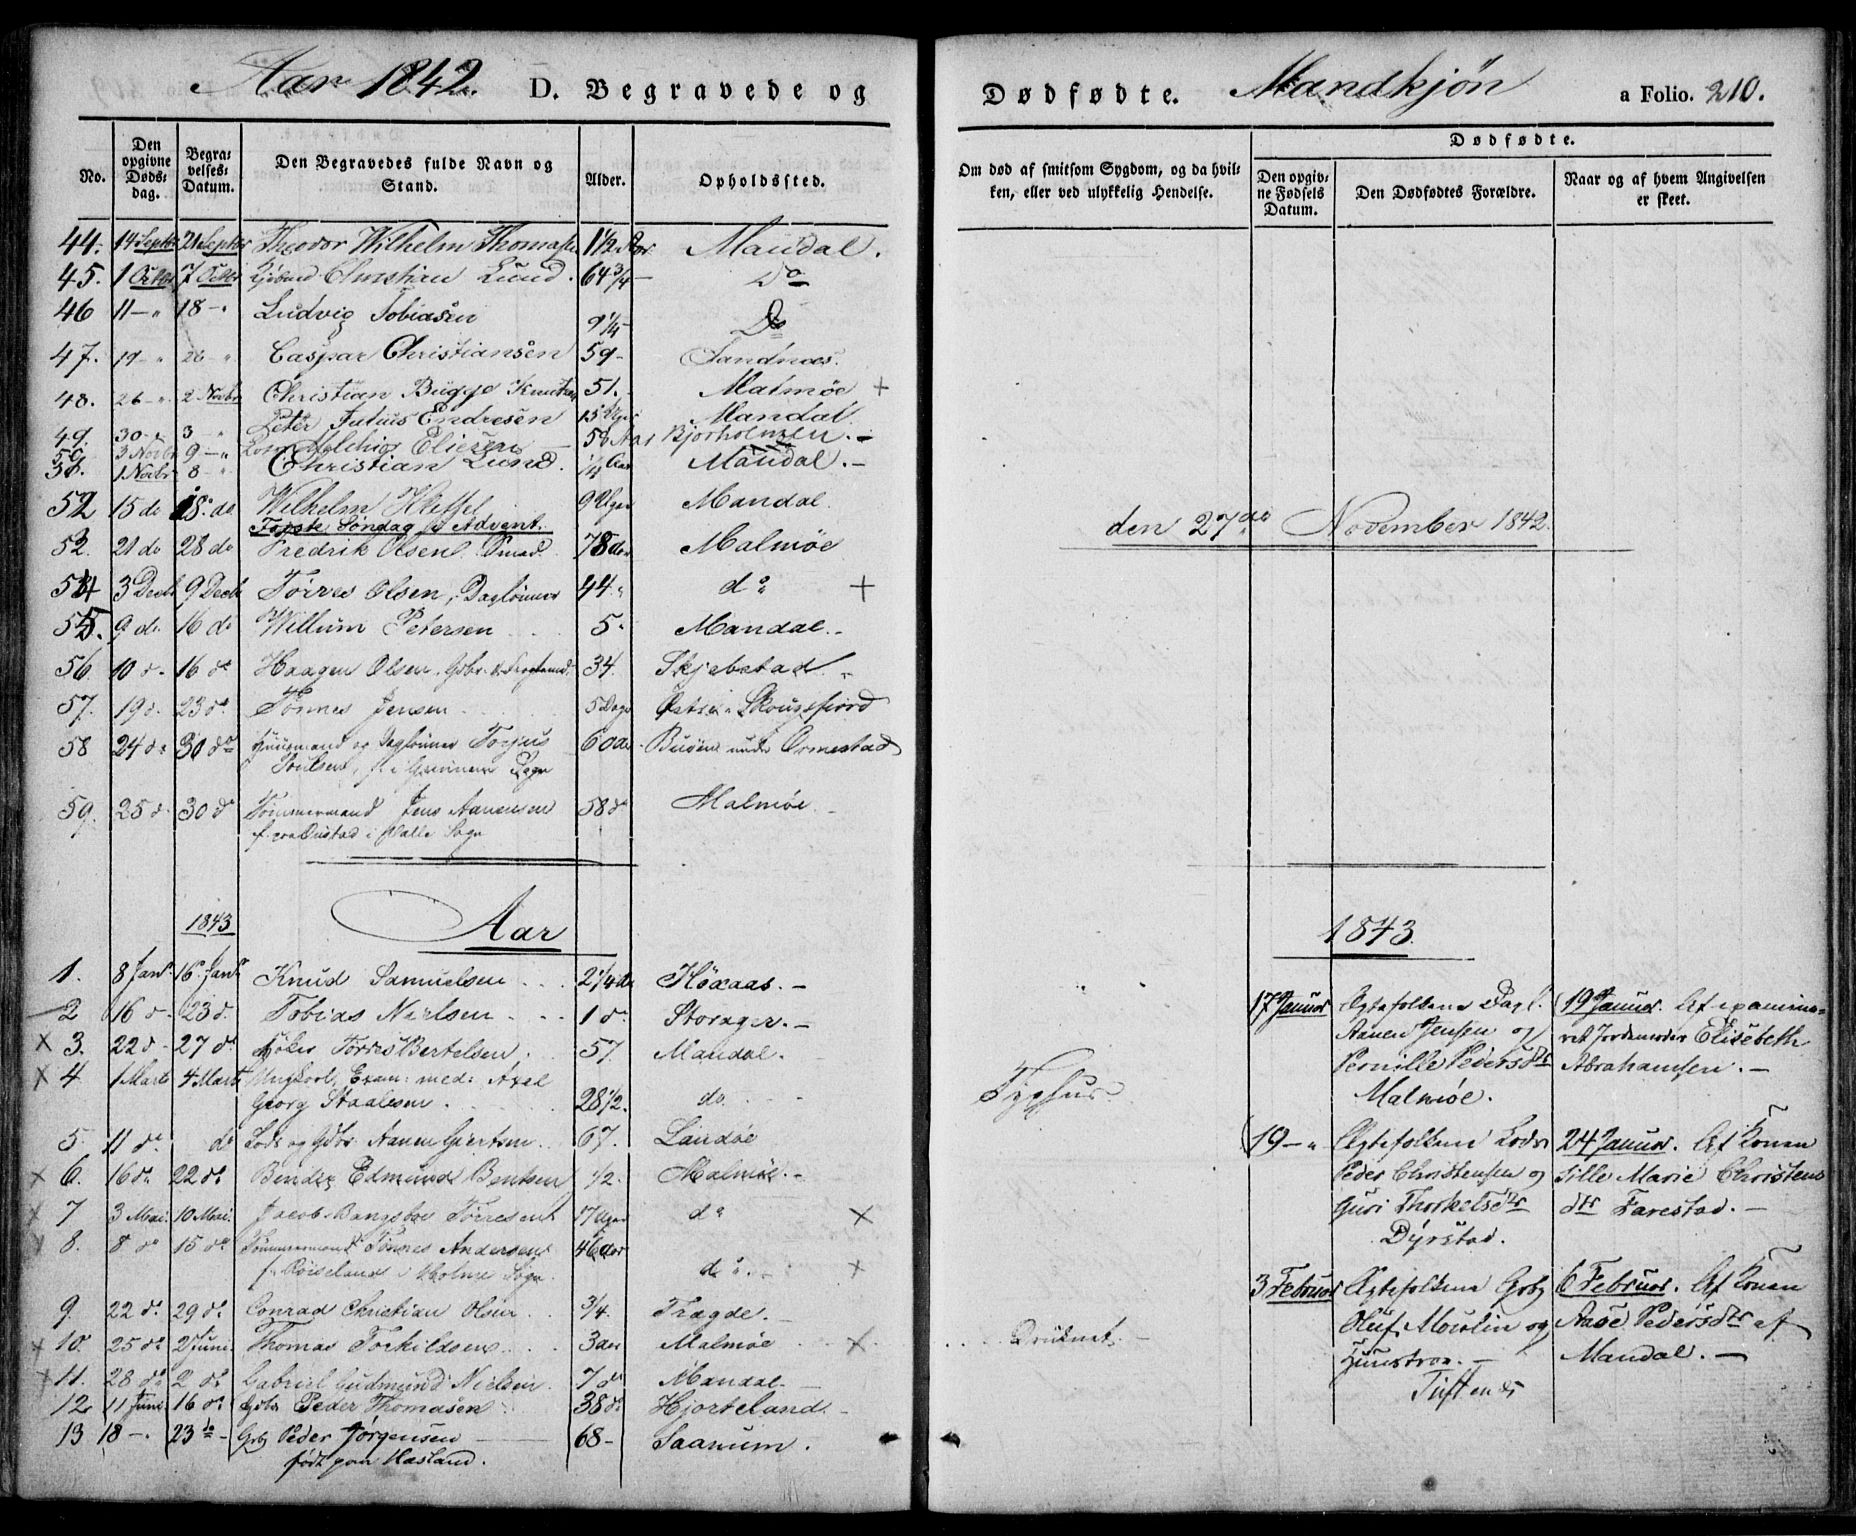 Aar 1842. D. Begravede og Dødfødte. Mandkjön a Folio. 210.
No.
Den opgivne Døds-dag.
Begra-velses-Datum.
Den Begravedes fulde Navn og Stand.
Alder.
Opholdssted.
Om død af smitsom Sygdom, og da hvil-ken, eller ved ulykkelig Hendelse.
Dødfødte.
Den opgiv-ne Fødsels Datum.
Den Dødfødtes Forældre.
Naar og af hvem Angivelsen er skeet.
44. 14 Septbr 21 Septbr Theodor Wilhelm Thomasen 1 1/2 Aar Mandal.
45. 1 Octbr 7 Octbr Christian Lund. 64 3/4 - Do
46 11 - " 18 - " Ludvig Tobiasen 9 1/4 - Do
47. 19 - " 26 - " Caspar Christiansen 59 - Sandnæs.
48. 26 - " 2 Novbr Christian Bügge Knutsen 51. - Malmöe +
49. 30 - " 3 - " Peter Julius Endresen 15 Uger Mandal.
50. 3 Novbr 9 - " Melchior Eliesen 58 Aar Bjorholmen. -
51. 1 Novbr 8 - " Christian Lund. 1/4 Aar Mandal. -
52 15 do 18. do Wilhelm 9 Uger Mandal.
Første Söndag i Advent. den 27de November 1842.
53. 21 do 28 do Fredrik Olsen Smed 78 Aar Malmöe
54 3 Decb 9 Decb Törres Olsen, Daglönner 44. " do +
55. 9 do 16 do Willum Petersen 5. Mandal. -
56. 10 d. 16 do Haagen Olsen, Gdbr. 34. Skjebstad. "
57. 19 d. 23 do Tönnes Jensen 5 Dage Østre Skougsfiord
58 24 do 30 do Huusmand og Daglönner Torjus 60 Aar Buöen under Ormestad
Poulsen, f. i Sogn
59. 25 d. 30 do Tömmermand Jens Aanensen 58 do Malmöe. -
f. paa i Valle Sogn
1843 Aar 1843.
1. 8 Janr. 16. Janr. Knud Samuelsen 2 1/4 Aar Höxaas. -
2 16 d. 23 d. Tobias Nielsen 1 do Storager. -
× 3. 22 d. 27 do Höker Törres Bertelsen. 57. Mandal. -
× 4. 1 Marts 4 Marts Ungkarl, Exam: med: Axel
Georg Staalesen. 28 1/2. do. Typhus.
5. 11 do do Lods og Gdbr Aanen Giertsen. 67. Landöe
× 6. 16 do 22 do Edmund Bentsen 1/2. Malmöe. -
× 7 3 Mai. 10 Mai. Jacob Törresen 17 Uger do ×
× 8. 8 do 15 do Tömmermand Tönnes Andersen 46 Aar
f. Röiseland i Holme Sogn. do. - ×
9. 22 do 29 do Conrad Christian Olsen 3/4. Tragde. -
× 10. 25 do 2 Juni. Thomas Torkildsen 3 Aar Malmöe × Druknet. -
× 11. 28 do 2 do Gabriel Gudmund Nielsen. 7 do Mandal. -
12 11 Juni 16 do Gdbr Peder Thomasen 38 do Hjorteland. -
13 18 - . 23 do - Grbg Peder Jørgensen 68 - Saanum.
født paa Hasland.
17 Januar Ægtefolkene Dagl.
Aanen Jensen og
Pernille Pedersdtr
Malmöe.
19 Januar. Af examine-
ret Jordemoder Elisebeth
Abrahamsen. -
19 - " Ægtefolkene Lods
Peder Christensen og
Guri Thorkelsdtr
Dyrstad.
24 Januar. Af Konen
Sille Marie Christens
dtr Farestad. -
3 Februar Ægtefolkene Grbg
Oluf og
Hunstroe. -
Tuftenes
6 Februar. Af Konen
Aase Pedersdtr af
Mandal. -